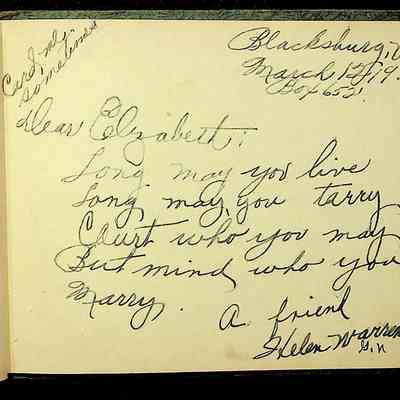 Card me
sometimes
Blacksburg,
March 12, 19
Box 652
Dear Elizabeth:
Long may you live
Long may you tarry
Court who you may
But mind who you
Marry.
A friend
Helen Warren